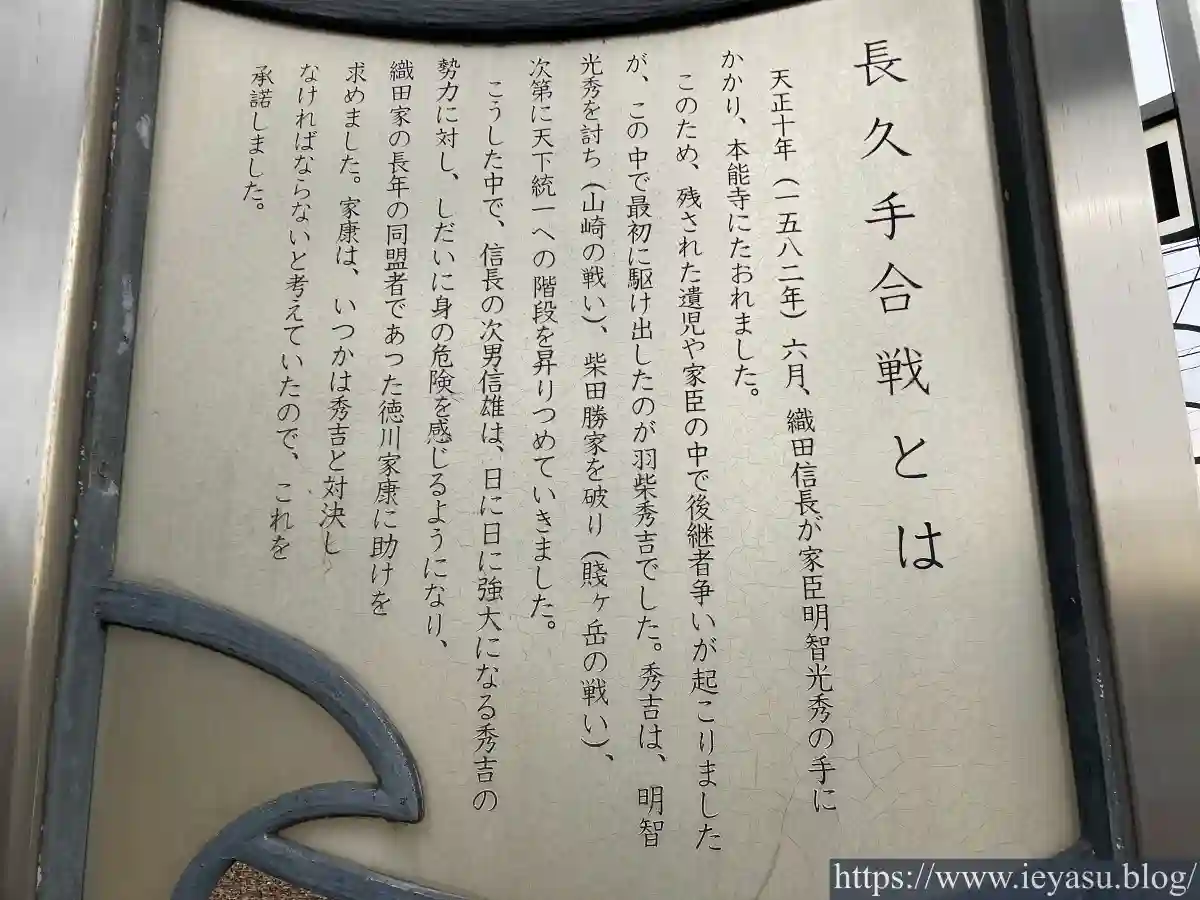 長久手合戦とは
天正十年（一五八二年）六月、織田信長が家臣明智光秀の手に
かかり、本能寺にたおれました。
このため、残された遺児や家臣の中で後継者争いが起こりました
が、この中で最初に駆け出したのが羽柴秀吉でした。秀吉は、明智
光秀を討ち（山崎の戦い）、柴田勝家を破り（賤ヶ岳の戦い）、
次第に天下統一への階段を昇りつめていきました。
こうした中で、信長の次男信雄は、日に日に強大になる秀吉の
勢力に対し、しだいに身の危険を感じるようになり、
織田家の長年の同盟者であった徳川家康に助けを
求めました。家康は、いつかは秀吉と対決し
なければならないと考えていたので、これを
承諾しました。
https://www.ieyasu.blog/